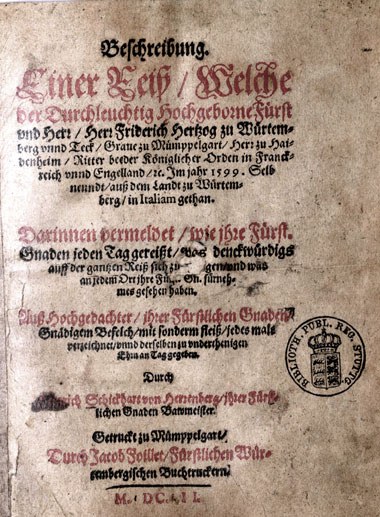 Beschreibung.
Einer Reiß / Welche
der Durchleuchtig Hochgeborne Fürst
vnd Herr / Herr Friderich Hertzog zu Würtem-
berg vnnd Teck / Graue zu Mümppelgart / Herr zu Hai-
denheim / Ritter beeder Königlicher Orden in Franck-
reich vnnd Engelland / ꝛc. Im jahr 1599. Selb
neundt / auß dem Landt zu Würtem-
berg / in Italiam gethan.
Darinnen vermeldet / wie jhre Fürst.
Gnaden jeden Tag gereißt / was denckwürdigs
auff der gantzen Reiß sich zu gen / vnd was
an jedem Ort jhre Fü Gn. fürneh-
mes gesehen haben.
Auß Hochgedachter / jhrer Fürstlichen Gnaden /
Gnädigem Befelch / mit sonderm fleiß / jedes mals
verzeichnet / vnnd derselben zu vnderthenigen
Ehrn an Tag gegeben.
Durch
rich Schickhart von Herrenberg / jhrer Fürst-
lichen Gnaden Bawmeister.
Getruckt zu Mümppelgart /
Durch Jacob Foillet / Fürstlichen Wür-
tembergischen Buchtruckern.
M. DC. II.
BIBLIOTH. PUBL. REG. STUTTG.